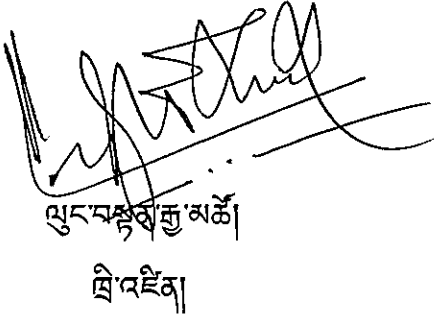 ལུང་བསྟན་རྒྱ་མཚོ།
ཁྲི་འཛིན།